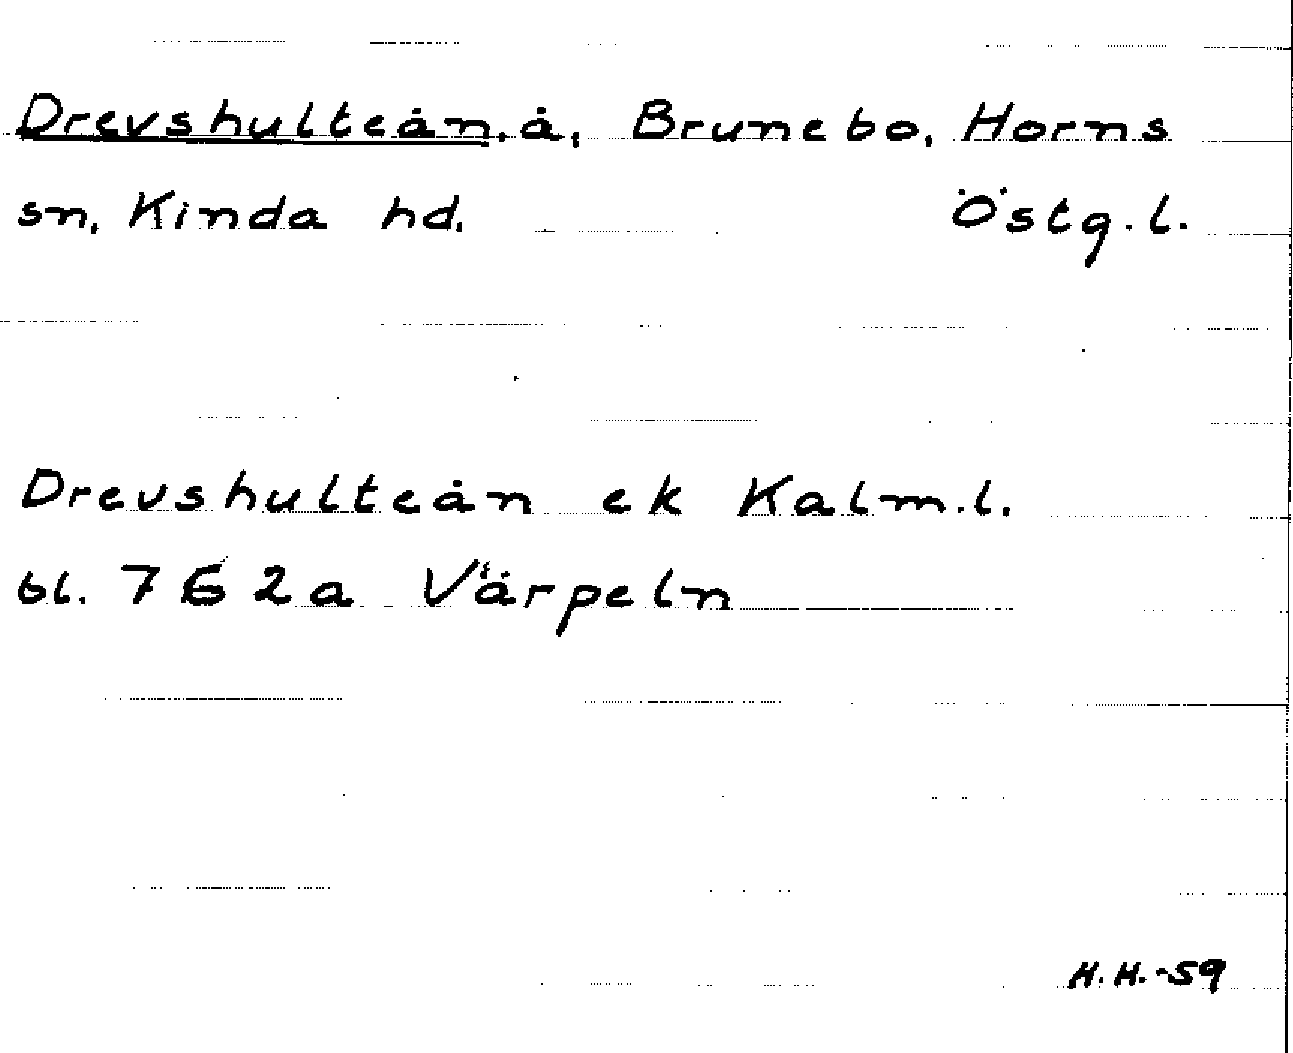 Drevshulteån, å, Brunebo, Horns
sn, Kinda hd. Östg. l.
Drevshulteån ek Kalm. l.
bl. 762a Värpeln
H.H. -59